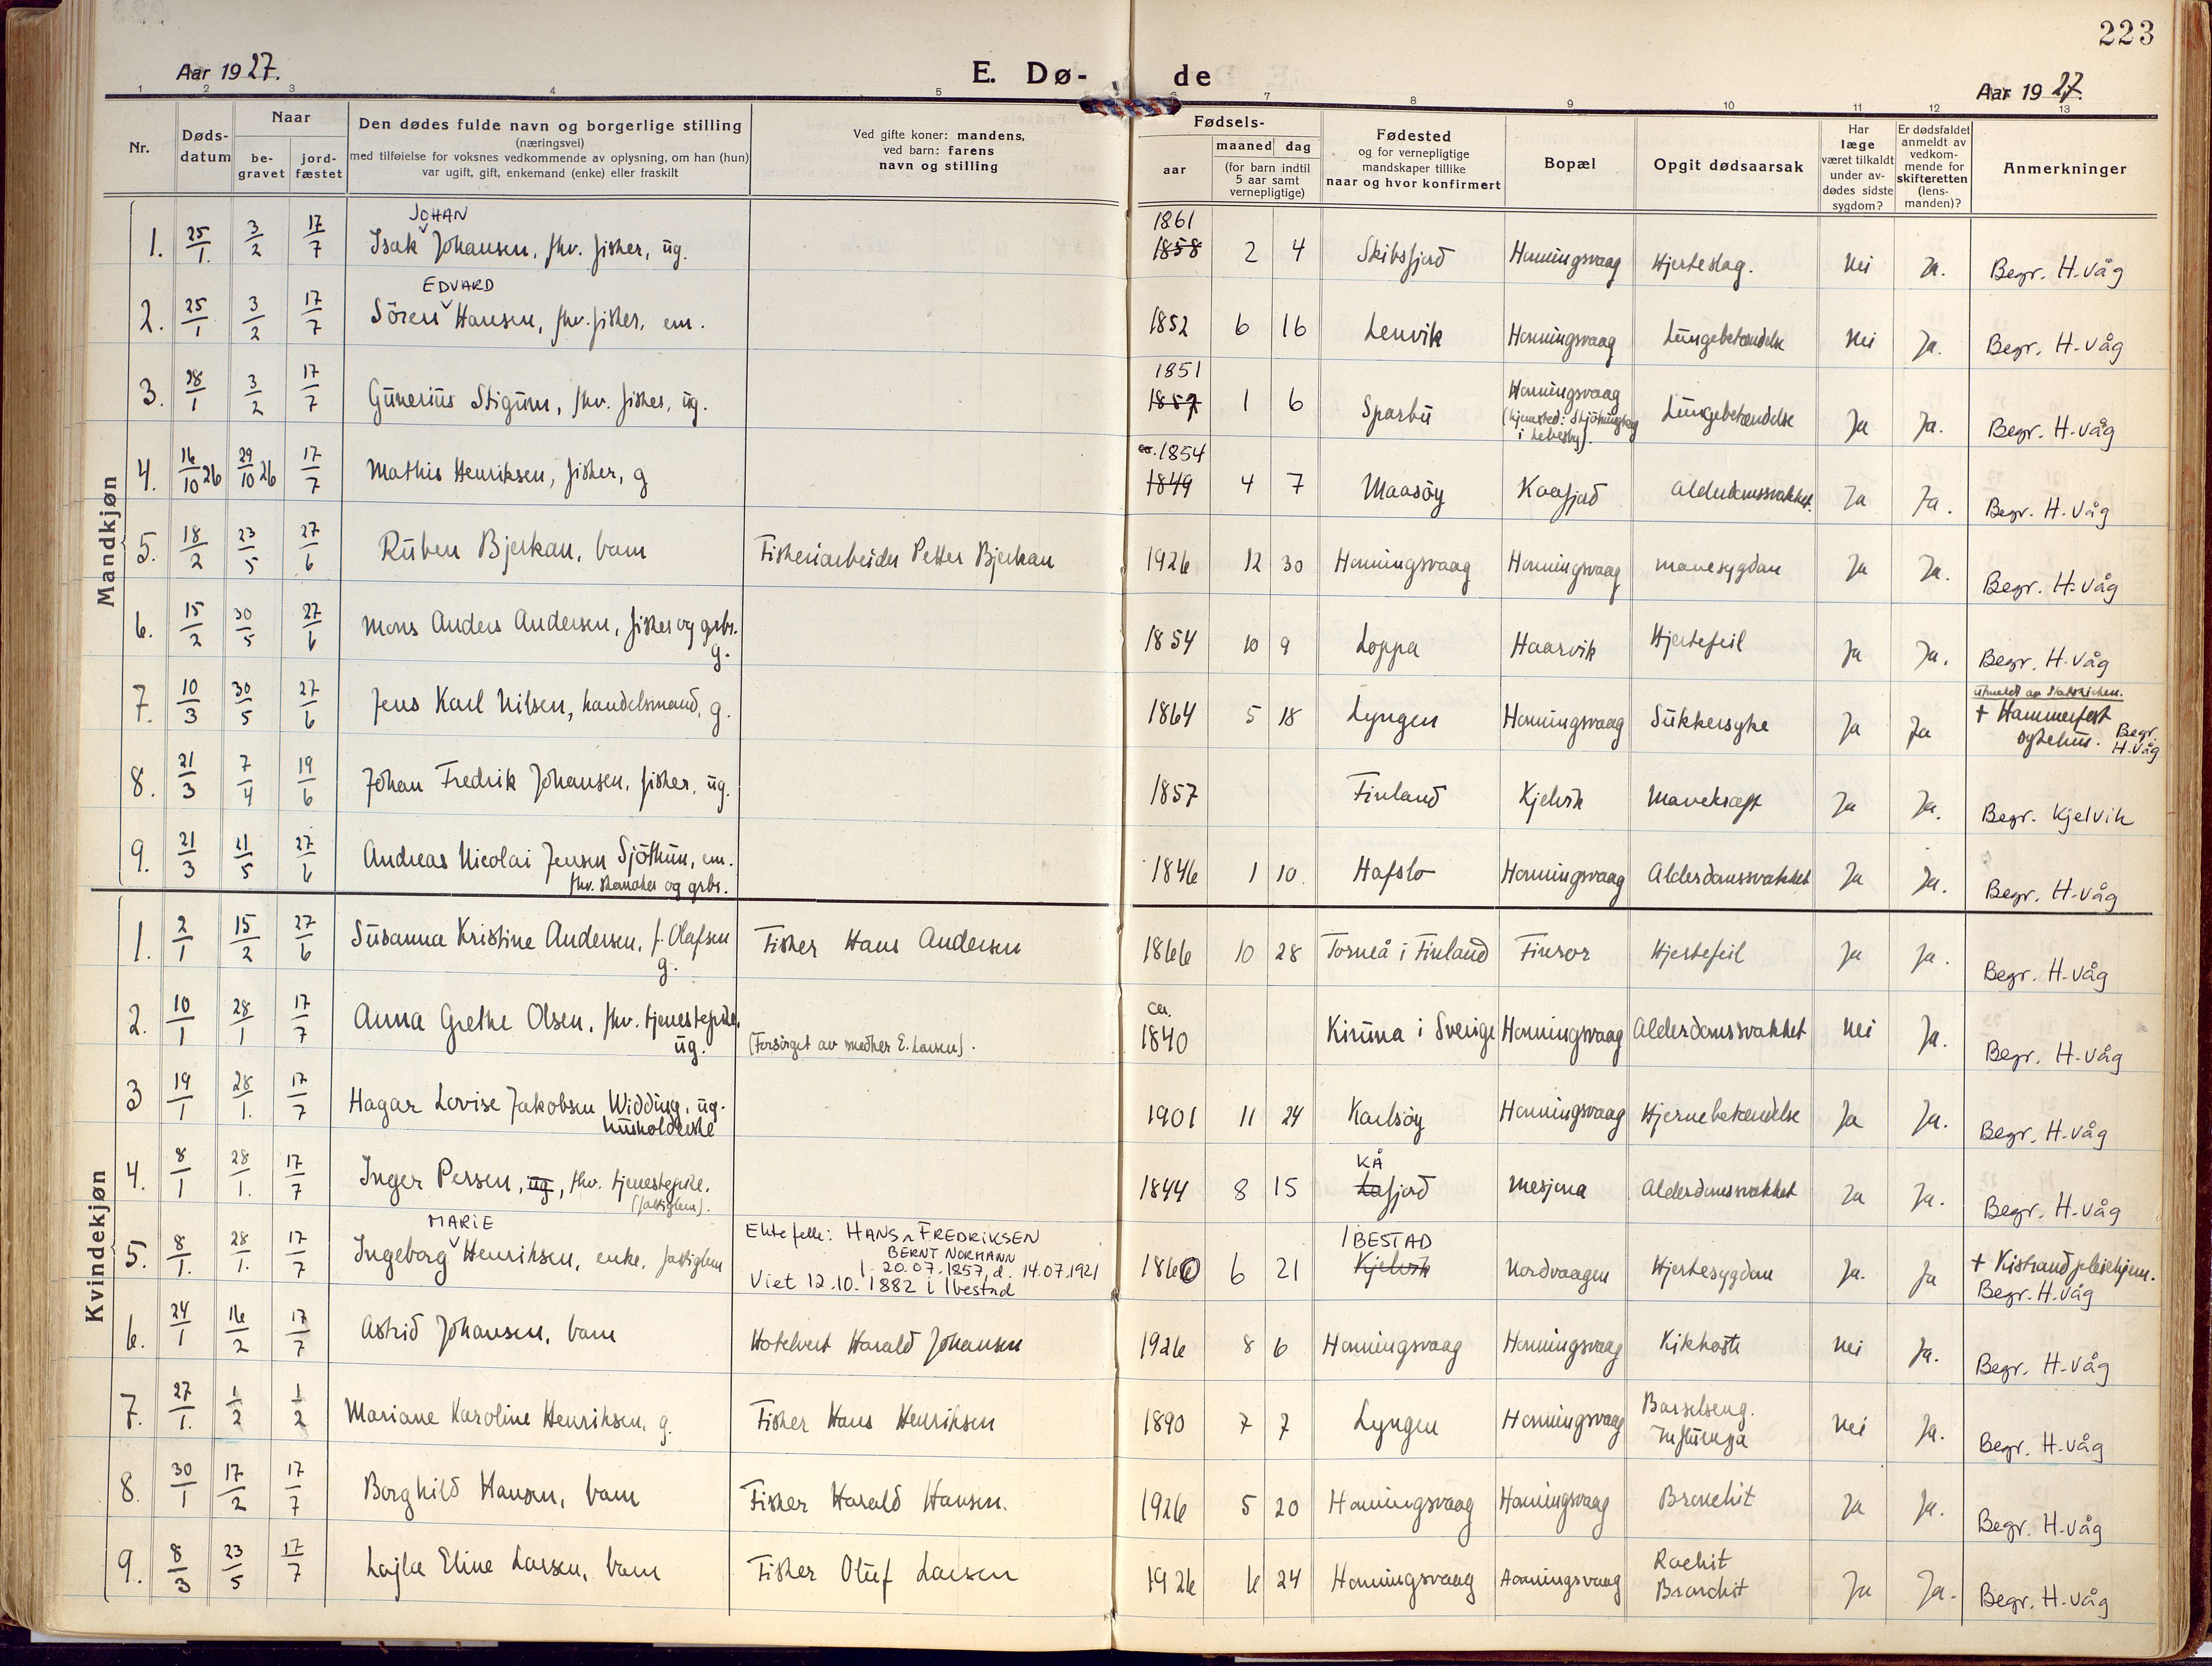 223
Aar 1927.
E. Dø- de
Aar 1927.
1 2 3 4 5 6 7 8 9 10 11 12 13
Nr.
Døds-
datum
Naar
be-
gravet
jord-
fæstet
Den dødes fulde navn og borgerlige stilling
(næringsvei)
med tilføielse for voksnes vedkommende av oplysning, om han (hun)
var ugift, gift, enkemand (enke) eller fraskilt
Ved gifte koner: mandens,
ved barn: farens
navn og stilling
Fødsels-
aar
maaned dag
(for barn indtil
5 aar samt
vernepligtige)
Fødested
og for vernepligtige
mandskaper tillike
naar og hvor konfirmert
Bopæl
Opgit dødsaarsak
Har
læge
været tilkaldt
under av-
dødes sidste
sygdom?
Er dødsfaldet
anmeldt av
vedkom-
mende for
skifteretten
(lens-
manden)?
Anmerkninger
Mandkjøn
JOHAN 1861
1. 25/1. 3/2 17/7 Isak Johansen, fhv. fisker, ug. 1858 2 4 Skibsfjord Honningsvaag Hjerteslag. Nei Ja. Begr. H-våg
EDVARD
2. 25/1 3/2 17/7 Sören Hansen, fhv. fisker, em. 1852 6 16 Lenvik Honningsvaag Lungebetændelse Nei Ja. Begr. H-våg
1851
3. 28/1 3/2 17/7 Gunerius Stigum, fhv. fisker, ug. 1857 1 6 Sparbu Honningsvaag Lungebetændelse Ja Ja. Begr. H-våg
(hjemsted:
i Lebesby).
ca. 1854
4. 16/10 26 29/10 26 17/7 Mathis Henriksen, fisker, g 1849 4 7 Maasöy Kaafjord Alderdomssvakhet. Ja Ja. Begr. H-våg
5. 18/2 23/5 27/6 Ruben Bjerkan, barn Fiskeriarbeider Petter Bjerkan 1926 12 30 Honningsvaag Honningsvaag Mavesygdom Ja Ja. Begr. H-våg
6. 15/2 30/5 27/6 Mons Anders Andersen, fisker og grbr. 1854 10 9 Loppa Haarvik Hjertefeil Ja Ja. Begr. H-våg
g.
utmeldt av statskirken.
7. 10/3 30/5 27/6 Jens Karl Nilsen, handelsmand, g. 1864 5 18 Lyngen Honningsvaag Sukkersyke Ja Ja + Hammerfest
sykehus. Begr. H-våg
8. 21/3 7/4 19/6 Johan Fredrik Johansen, fisker, ug. 1857 Finland Kjelvik Mavekræft Ja Ja. Begr. Kjelvik
9. 21/3 21/5 27/6 Andreas Nicolai Jensen Sjöthun, em. 1846 1 10 Hafslo Honningsvaag Alderdomssvakhet Ja Ja. Begr. H-våg
fhv. skomaker og grbr.
Kvindekjøn
1. 2/1 15/2 27/6 Susanna Kristine Andersen, f. Olafsen Fisker Hans Andersen 1866 10 28 Torneå i Finland Finvor Hjertefeil Ja Ja. Begr. H-våg
g.
ca.
2. 10/1 28/1 17/7 Anna Grethe Olsen, fhv. tjenestepike, 1840 Kiruna i Sverige Honningsvaag Alderdomssvakhet Nei Ja. Begr. H-våg
ug. (Forsörget av snedker E. Larsen).
3 19/1 28/1. 17/7 Hagar Lovise Jakobsen Widding, ug. 1901 11 24 Karlsöy Honningsvaag Hjernebetændelse Ja Ja. Begr. H-våg
husholderske
KÅ
4. 8/1 28/1. 17/7 Inger Persen, ug, fhv. tjenestepike. 1844 8 15 Lafjord Mesjona Alderdomssvakhet Ja Ja. Begr. H-våg
(fattiglem).
MARIE Ektefelle: HANS FREDRIKSEN IBESTAD
BERNT NORMANN
5. 8/1. 28/1. 17/7 Ingeborg Henriksen, enke, fattiglem f. 20.07.1857, d. 14.07.1921 1860 6 21 Kjelvik Nordvaagen Hjertesygdom Ja. Ja + Kistrand pleiehjem.
Viet 12.10.1882 i Ibestad Begr. H-våg
6. 24/1 16/2 17/7 Astrid Johansen, barn Hotelvert Harald Johansen 1926 8 6 Honningsvaag Honningsvaag Kikhoste Nei Ja. Begr. H-våg
7. 27/1. 1/2 1/2 Mariane Karoline Henriksen, g. Fisker Hans Henriksen 1890 7 7 Lyngen Honningsvaag Barselseng. Nei Ja. Begr. H-våg
Influenza
8. 30/1 17/2 17/7 Borghild Hansen, barn Fisker Harald Hansen. 1926 5 20 Honningsvaag Honningsvaag Bronchit Ja Ja. Begr. H-våg
9. 8/3 23/5 17/7 Lajla Eline Larsen, barn Fisker Oluf Larsen 1926 6 24 Honningsvaag Honningsvaag Rachit Ja Ja. Begr. H-våg
Bronchit